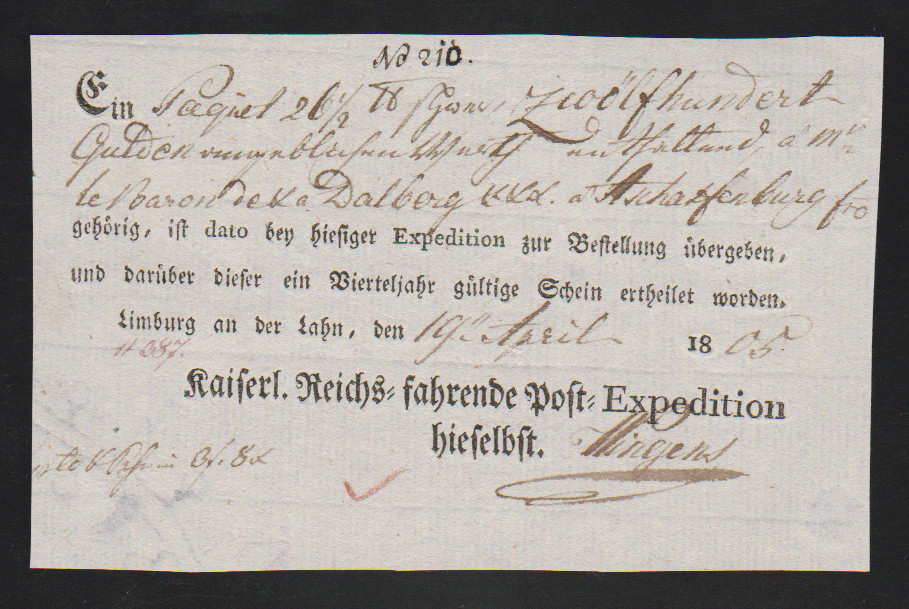 No 210.
Ein Paquet 26 1/2 ℔ schwer, zwölfhundert
Gulden angeblichen Werth enthaltend, à Mr
le Baron de Dalberg xxx. à Aschaffenburg fro
gehörig, ist dato bey hiesiger Expedition zur Bestellung übergeben,
und darüber dieser ein Vierteljahr gültige Schein ertheilet worden.
Limburg an der Lahn, den 19n April 1805.
# 387.
Kaiserl. Reichs-fahrende Post-Expedition
hieselbst.